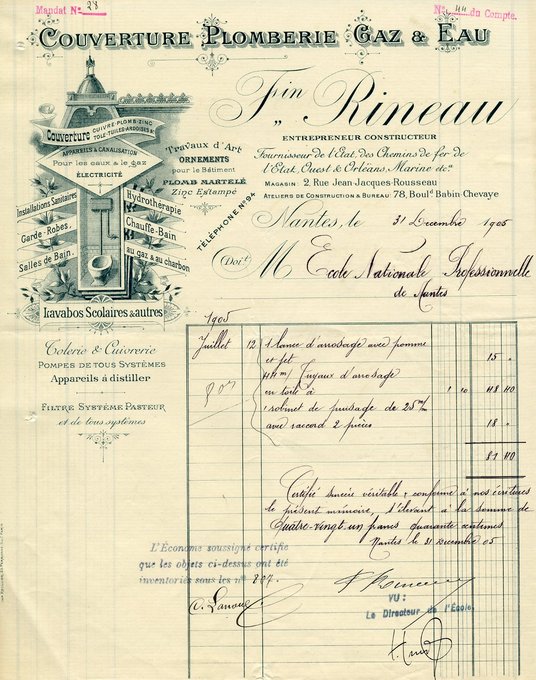 Mandat Nº 28
Nº 44 du Compte.
COUVERTURE PLOMBERIE GAZ & EAU
Fin Rineau
ENTREPRENEUR CONSTRUCTEUR
Fournisseur de l'Etat, des Chemins de fer de
l'Etat, Ouest & Orléans, Marine etc.
MAGASIN: 2, Rue Jean-Jacques-Rousseau
ATELIERS DE CONSTRUCTION & BUREAU 78, Boulᵈ Babin-Chevaye
TÉLÉPHONE Nº 94
Couverture
CUIVRE-PLOMB-ZINC
TOLE-TUILES-ARDOISES &
APPAREILS & CANALISATION
Pour les eaux & le gaz
ÉLECTRICITÉ
Travaux d'Art
ORNEMENTS
pour le Bâtiment
PLOMB MARTELÉ
Zinc Estampé
Installations Sanitaires
Garde-Robes
Salles de Bain.
Hydrotherapie
Chauffe-Bain
au gaz & au charbon
Lavabos Scolaires & autres
Tolerie & Cuivrerie
POMPES DE TOUS SYSTÈMES
Appareils à distiller
FILTRE SYSTÈME PASTEUR
et de tous systèmes
Nantes, le 31 Decembre 1905
Doit
M Ecole Nationale Professionnelle
de Nantes
1905
Juillet 12 1 lance d'arrosage avec pomme
et jet 15 "
44m/ Tuyaux d'arrosage
en toile à 1 10 48 40
1 robinet de puisage de 25 m/m
avec raccord 2 pièces 18 "
807
81 40
Certifié sincère véritable & conforme à nos écritures
le présent mémoire, s'élevant à la somme de
Quatre-vingt-un francs quarante centimes
Nantes le 31 Decembre 05
L'Économe soussigné certifie
que les objets ci-dessus ont été
inventoriés sous les nº 807.
VU:
Le Directeur de l'École,